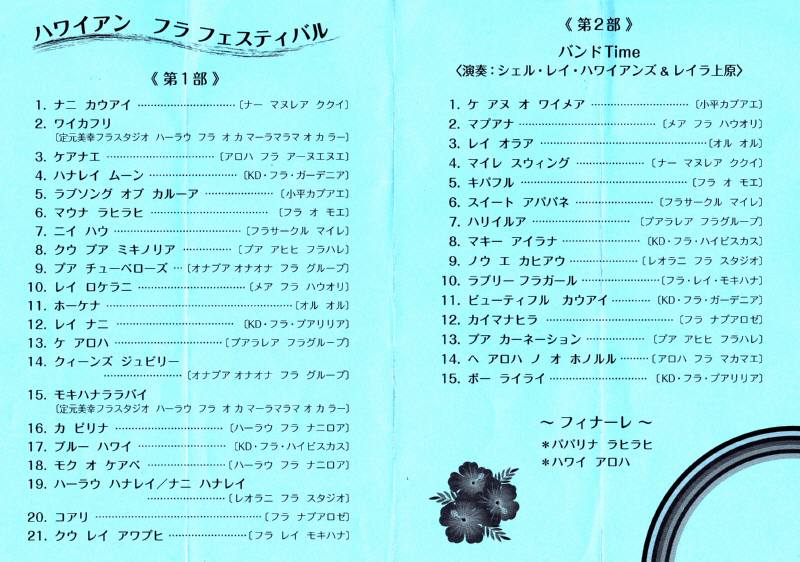 ハワイアン フラ フェスティバル
《 第１部 》
1. ナニ カウアイ ………………………〔ナー マヌレア ククイ〕
2. ワイカフリ
〔定元美幸フラスタジオ ハーラウ フラ オ カ マーラマラマ オ カ ラー〕
3. ケアナエ ………………………〔アロハ フラ アーヌエヌエ〕
4. ハナレイ ムーン ………………………〔KD・フラ・ガーデニア〕
5. ラブソング オブ カルーア ………………〔小平カプアエ〕
6. マウナ ラヒラヒ ………………………〔フラ オ モエ〕
7. ニイ ハウ ………………………〔フラサークル マイレ〕
8. クウ プア ミキノリア ………………〔プア アヒヒ フラハレ〕
9. プア チューベローズ …〔オナプア オナオナ フラ グループ〕
10. レイ ロケラニ ………………………〔メア フラ ハウオリ〕
11. ホーケナ ………………………………〔オル オル〕
12. レイ ナニ ………………………〔KD・フラ・プアリリア〕
13. ケ アロハ ………………………〔プアラレア フラグループ〕
14. クィーンズ ジュビリー
………………………〔オナプア オナオナ フラ グループ〕
15. モキハナララバイ
〔定元美幸フラスタジオ ハーラウ フラ オ カ マーラマラマ オ カ ラー〕
16. カ ピリナ ………………………〔ハーラウ フラ ナニロア〕
17. ブルー ハワイ ………………〔KD・フラ・ハイビスカス〕
18. モク オ ケアベ ………………〔ハーラウ フラ ナニロア〕
19. ハーラウ ハナレイ／ナニ ハナレイ
………………〔レオラニ フラ スタジオ〕
20. コアリ ………………………………〔フラ ナプアロゼ〕
21. クウ レイ アワプヒ ………………〔フラ レイ モキハナ〕
《 第２部 》
バンドTime
〈演奏：シェル・レイ・ハワイアンズ & レイラ上原〉
1. ケ アヌ オ ワイメア ………………………〔小平カプアエ〕
2. マプアナ ………………………〔メア フラ ハウオリ〕
3. レイ オラア ………………………………〔オル オル〕
4. マイレ スウィング ………………〔ナー マヌレア ククイ〕
5. キパフル ………………………………〔フラ オ モエ〕
6. スイート アパパネ ………………〔フラサークル マイレ〕
7. ハリイルア ………………………〔プアラレア フラグループ〕
8. マキー アイラナ ………………〔KD・フラ・ハイビスカス〕
9. ノウ エ カヒアウ ………………〔レオラニ フラ スタジオ〕
10. ラブリー フラガール ………………〔フラ・レイ・モキハナ〕
11. ビューティフル カウアイ …………〔KD・フラ・ガーデニア〕
12. カイマナヒラ ………………………〔フラ ナプアロゼ〕
13. プア カーネーション ………………〔プア アヒヒ フラハレ〕
14. ヘ アロハ ノ オ ホノルル ………〔アロハ フラ マカマエ〕
15. ポー ライライ ………………………〔KD・フラ・プアリリア〕
～ フィナーレ ～
＊パパリナ ラヒラヒ
＊ハワイ アロハ